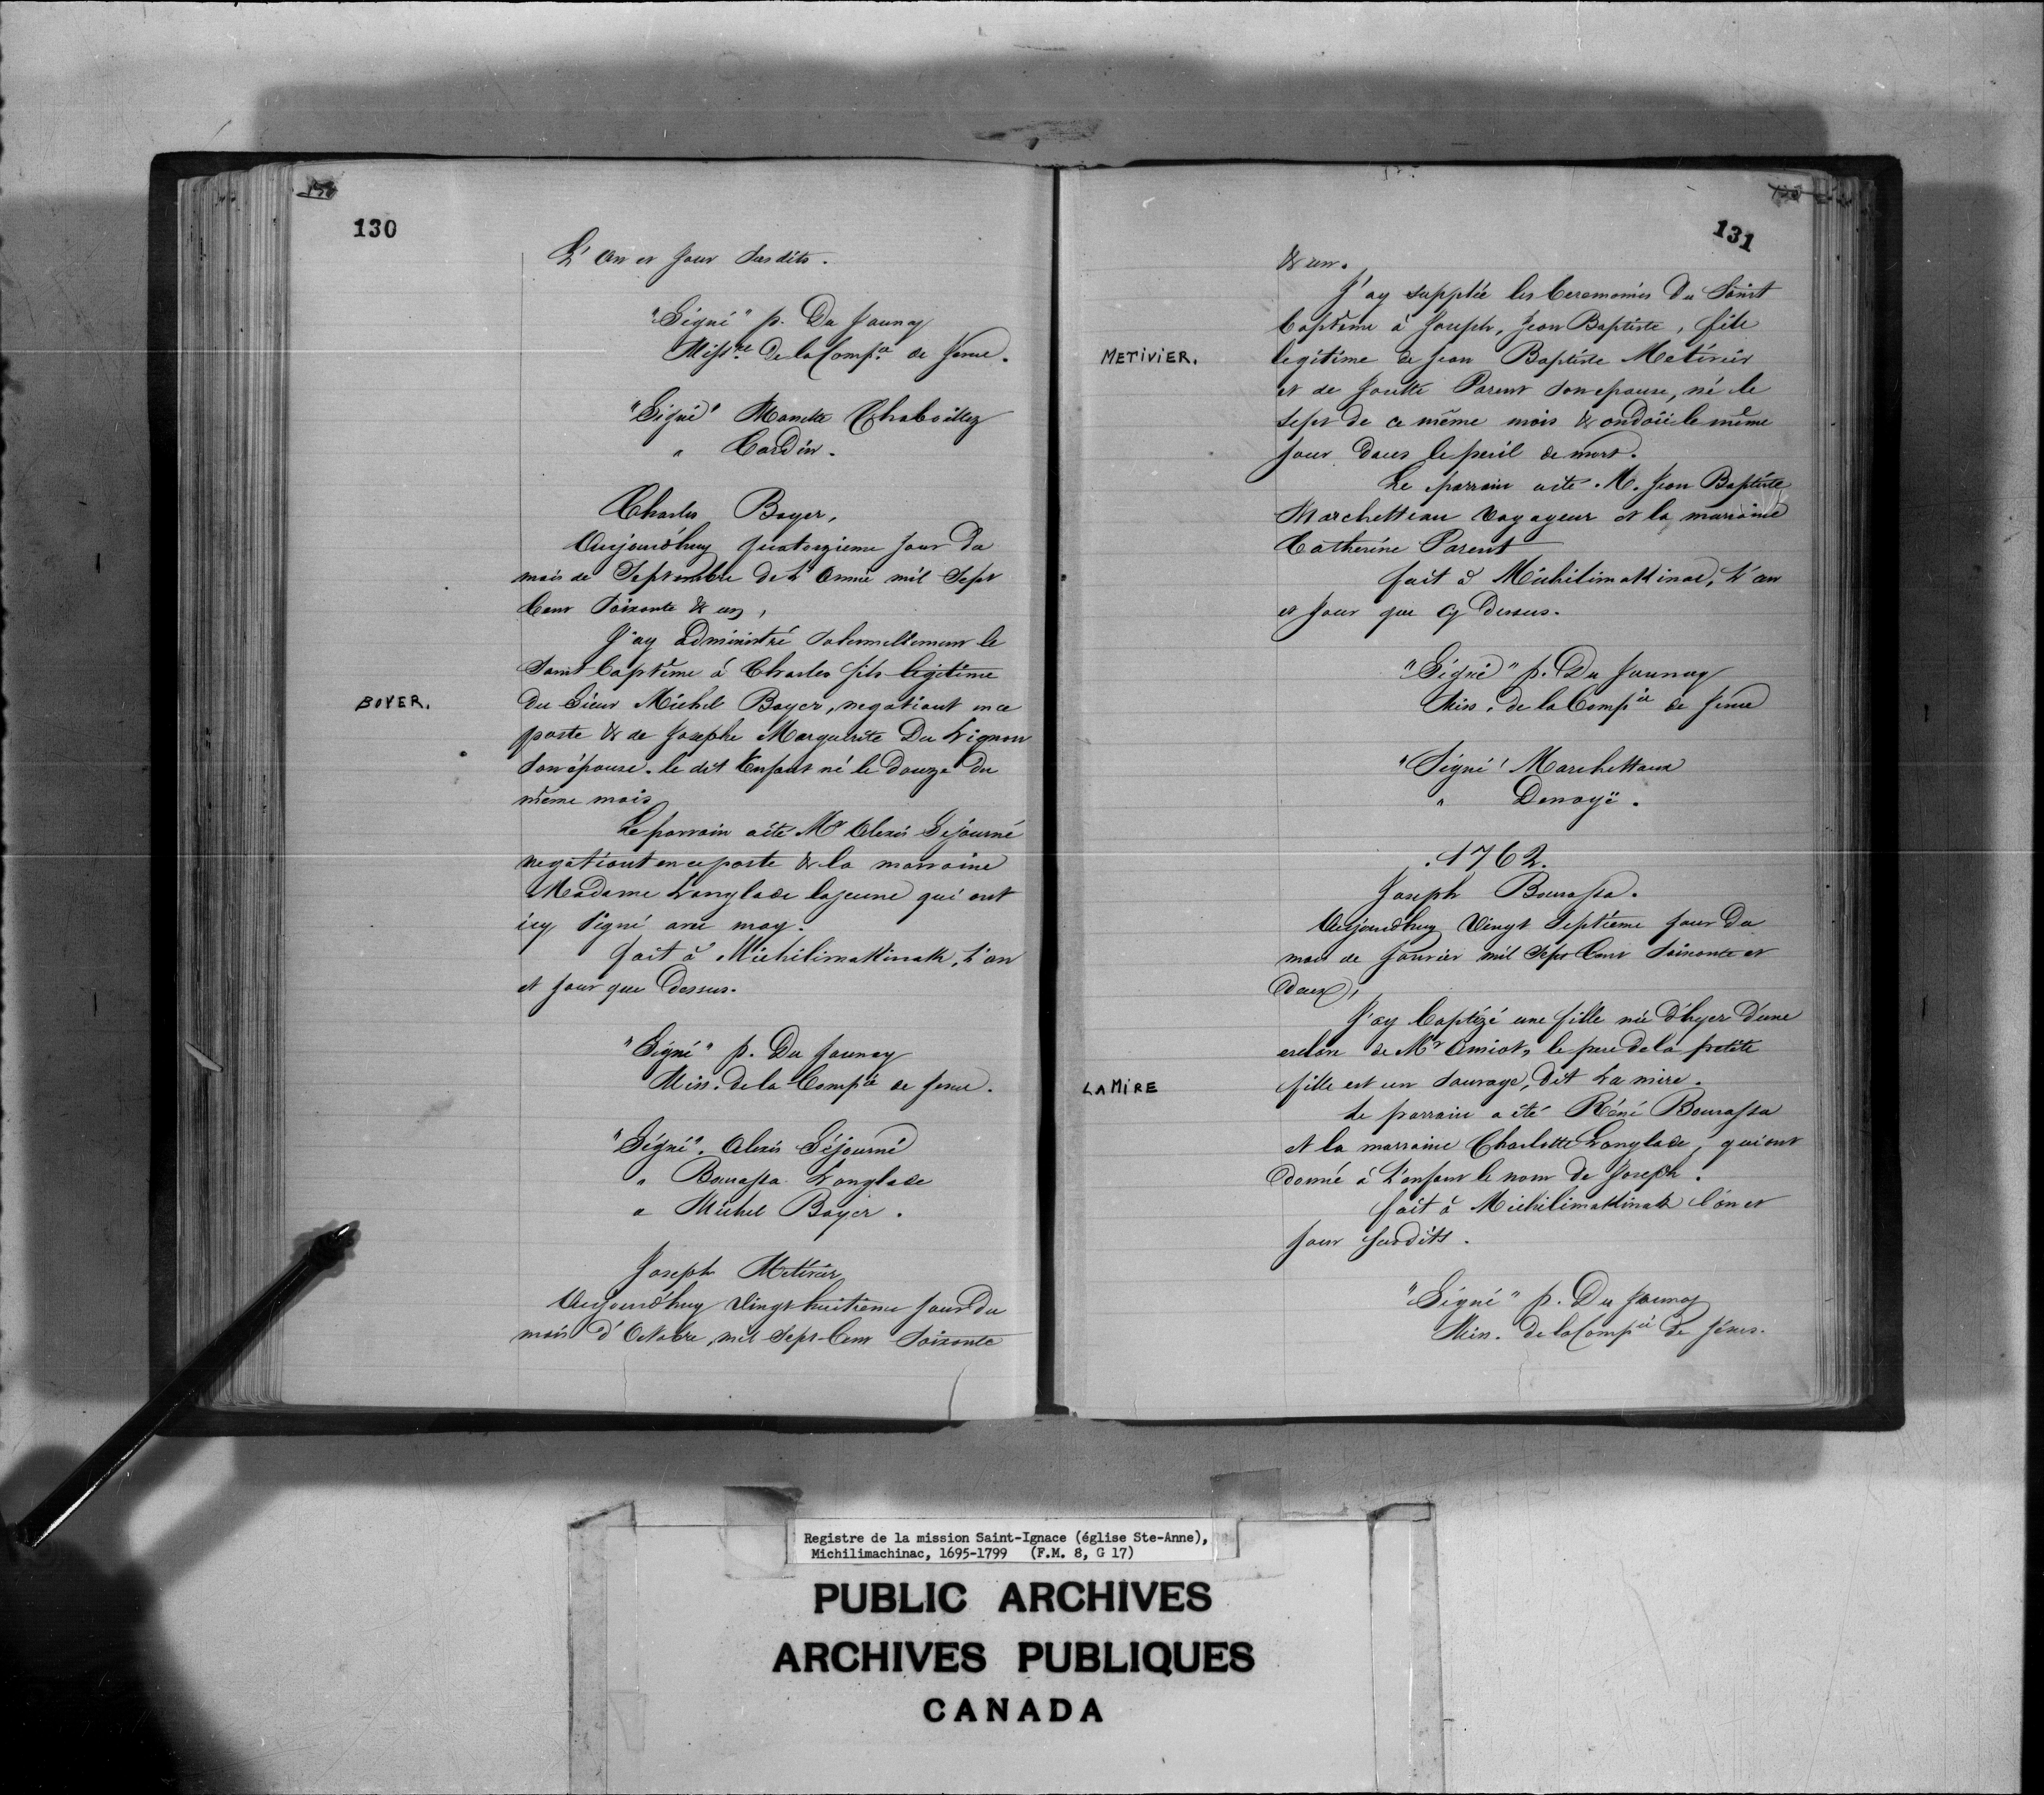 130
L'An et jour Susdits.
"Signé" p. Du Jaunay
Miss.re De la Comp.ie de Jesus.
"Signé" Manette Chaboillez
" Cardin.
Charles Boyer,
Aujourd'huy quatorzieme jour Du
mois de Septembre De L'Année mil Sept
Cent Soixante & un,
J'ay administré Solemnellement le
Saint baptême à Charles fils legitime
BOYER.
Du Sieur Michel Boyer, negotiant en ce
poste & de Josephe Marguerite Du Lignon
Son épouse. le dit Enfant né le douze du
même mois
Le parrain a été Mr Alexis Sejourné
negotiant en ce poste & la marraine
Madame Langlade la jeune qui ont
icy Signé avec moy.
fait à Michilimakinak, L'an
et jour que Dessus.
"Signé" p. Du Jaunay
Miss. de la Comp.ie de Jesus.
"Signé". Alexis Séjourné
" Bourassa Langlade
" Michel Boyer.
Joseph Metivier
Aujourd'huy Vingt huitieme jour Du
mois d'Octobre, mil Sept-Cent Soixante
131
& un.
J'ay supplée les Ceremonies Du Saint
baptême à Joseph, Jean Baptiste, fils
METIVIER.
legitime de Jean Baptiste Metivier
et de Josette Parent Son epouse, né le
sept de ce même mois & ondoïé le même
jour dans le peril de mort.
Le parrain a été M. Jean Baptiste
Marchetteau Voyageur et la marraine
Catherine Parent
fait à Michilimakinac, L'an
et jour que cy Dessus.
"Signé" p. Du Jaunay
Miss. de la Comp.ie de Jesus
"Signé" Marchetteau
" Denoyë.
.1762.
Joseph Bourassa.
Aujourd'huy Vingt Septième jour Du
mois de Janvier mil Sept Cent Soixante et
Deux,
J'ay baptizé une fille née d'hyer d'une
esclave de Mr Amiot, le pere de la petite
LAMIRE
fille est un Sauvage, Dit La mire.
Le parrain a été Réné Bourassa
et la marraine Charlotte Langlade, qui ont
Donné à L'enfant le nom de Joseph.
fait à Michilimakinak l'an et
jour susdits.
"Signé" p. Du Jaunay
Miss. de la Comp.ie de Jésus.
Registre de la mission Saint-Ignace (église Ste-Anne),
Michilimachinac, 1695-1799 (F.M. 8, G 17)
PUBLIC ARCHIVES
ARCHIVES PUBLIQUES
CANADA